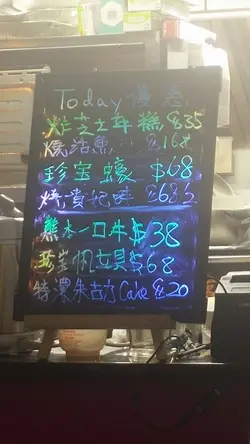 Today 優惠
炸芝士年糕 $35
燒活魚 $168
珍宝蠔 $68
燒貴妃蚌 $68
熊本一口牛 $38
珍宝帆立貝 $68
特濃朱古力 Cake $20